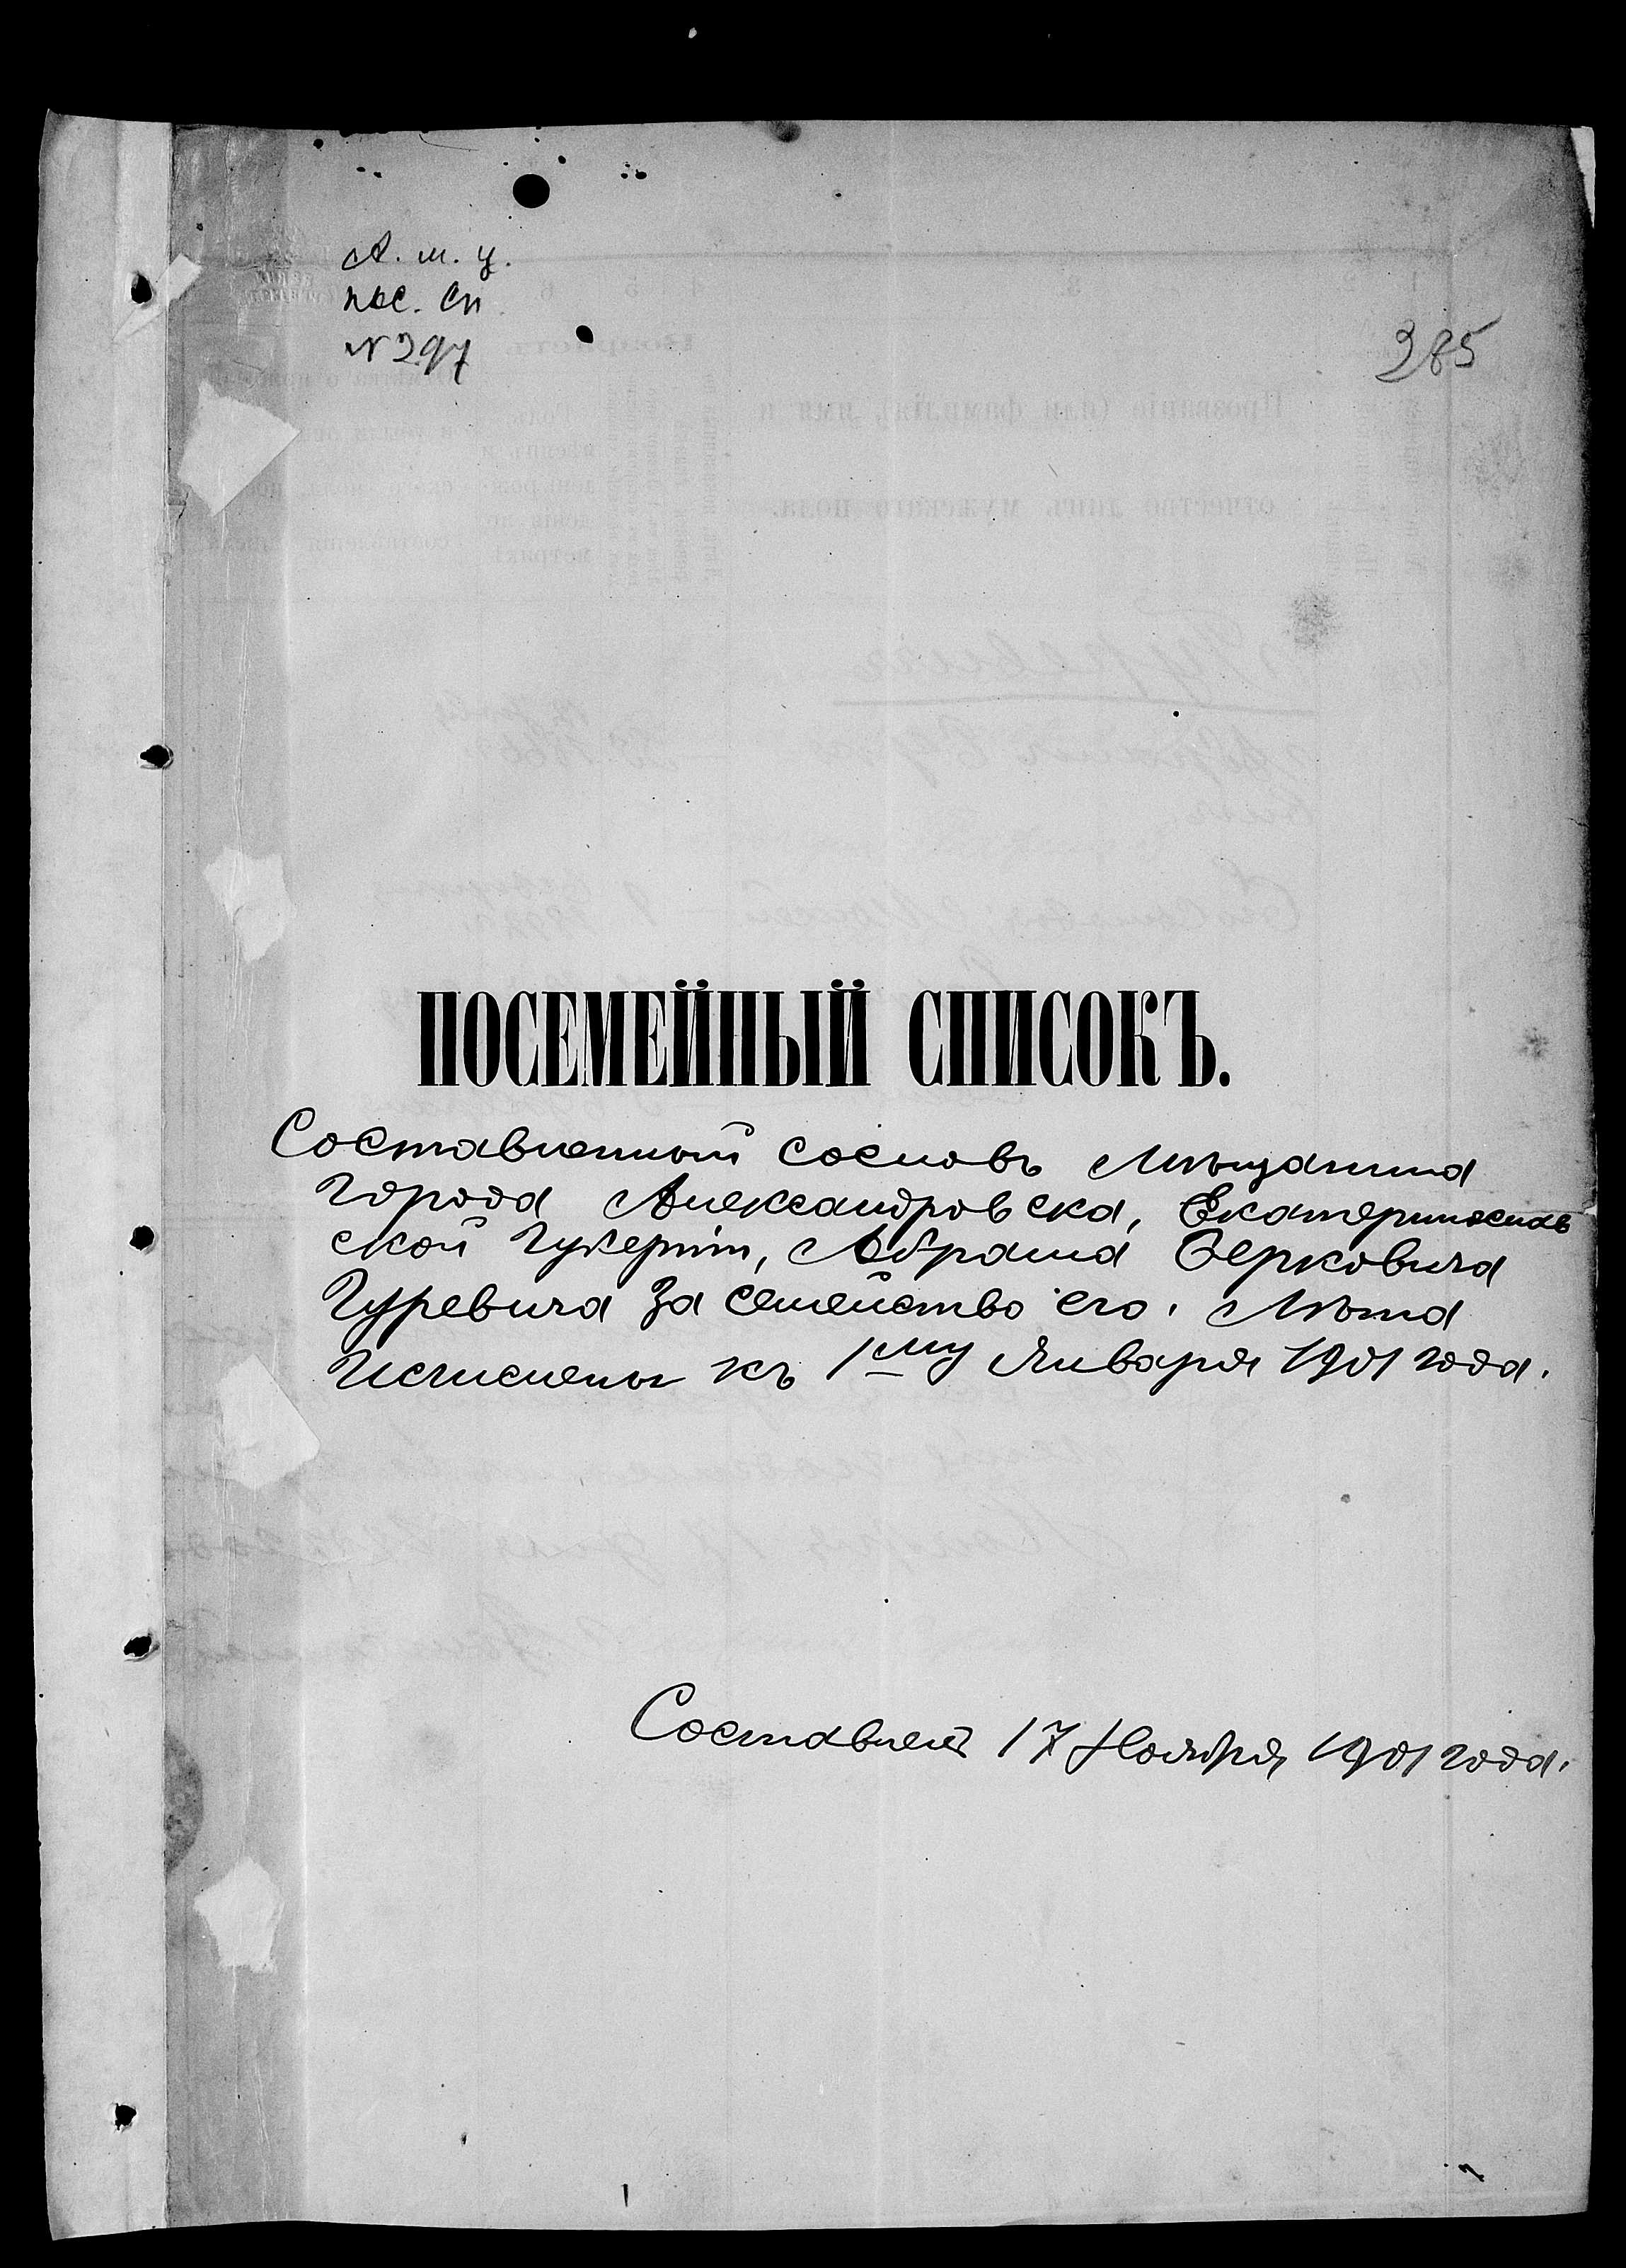 А. м. у.
пос. сп
№ 297
385
ПОСЕМЕЙНЫЙ СПИСОКЪ.
Составленный сословъ Мѣщанина
города Александровска, Екатеринослав
ской Губерніи, Абрама Берковича
Гуревича за семейство его. Лѣта
Исчислены къ 1му Января 1901 года.
Составленъ 17 Ноября 1901 года.